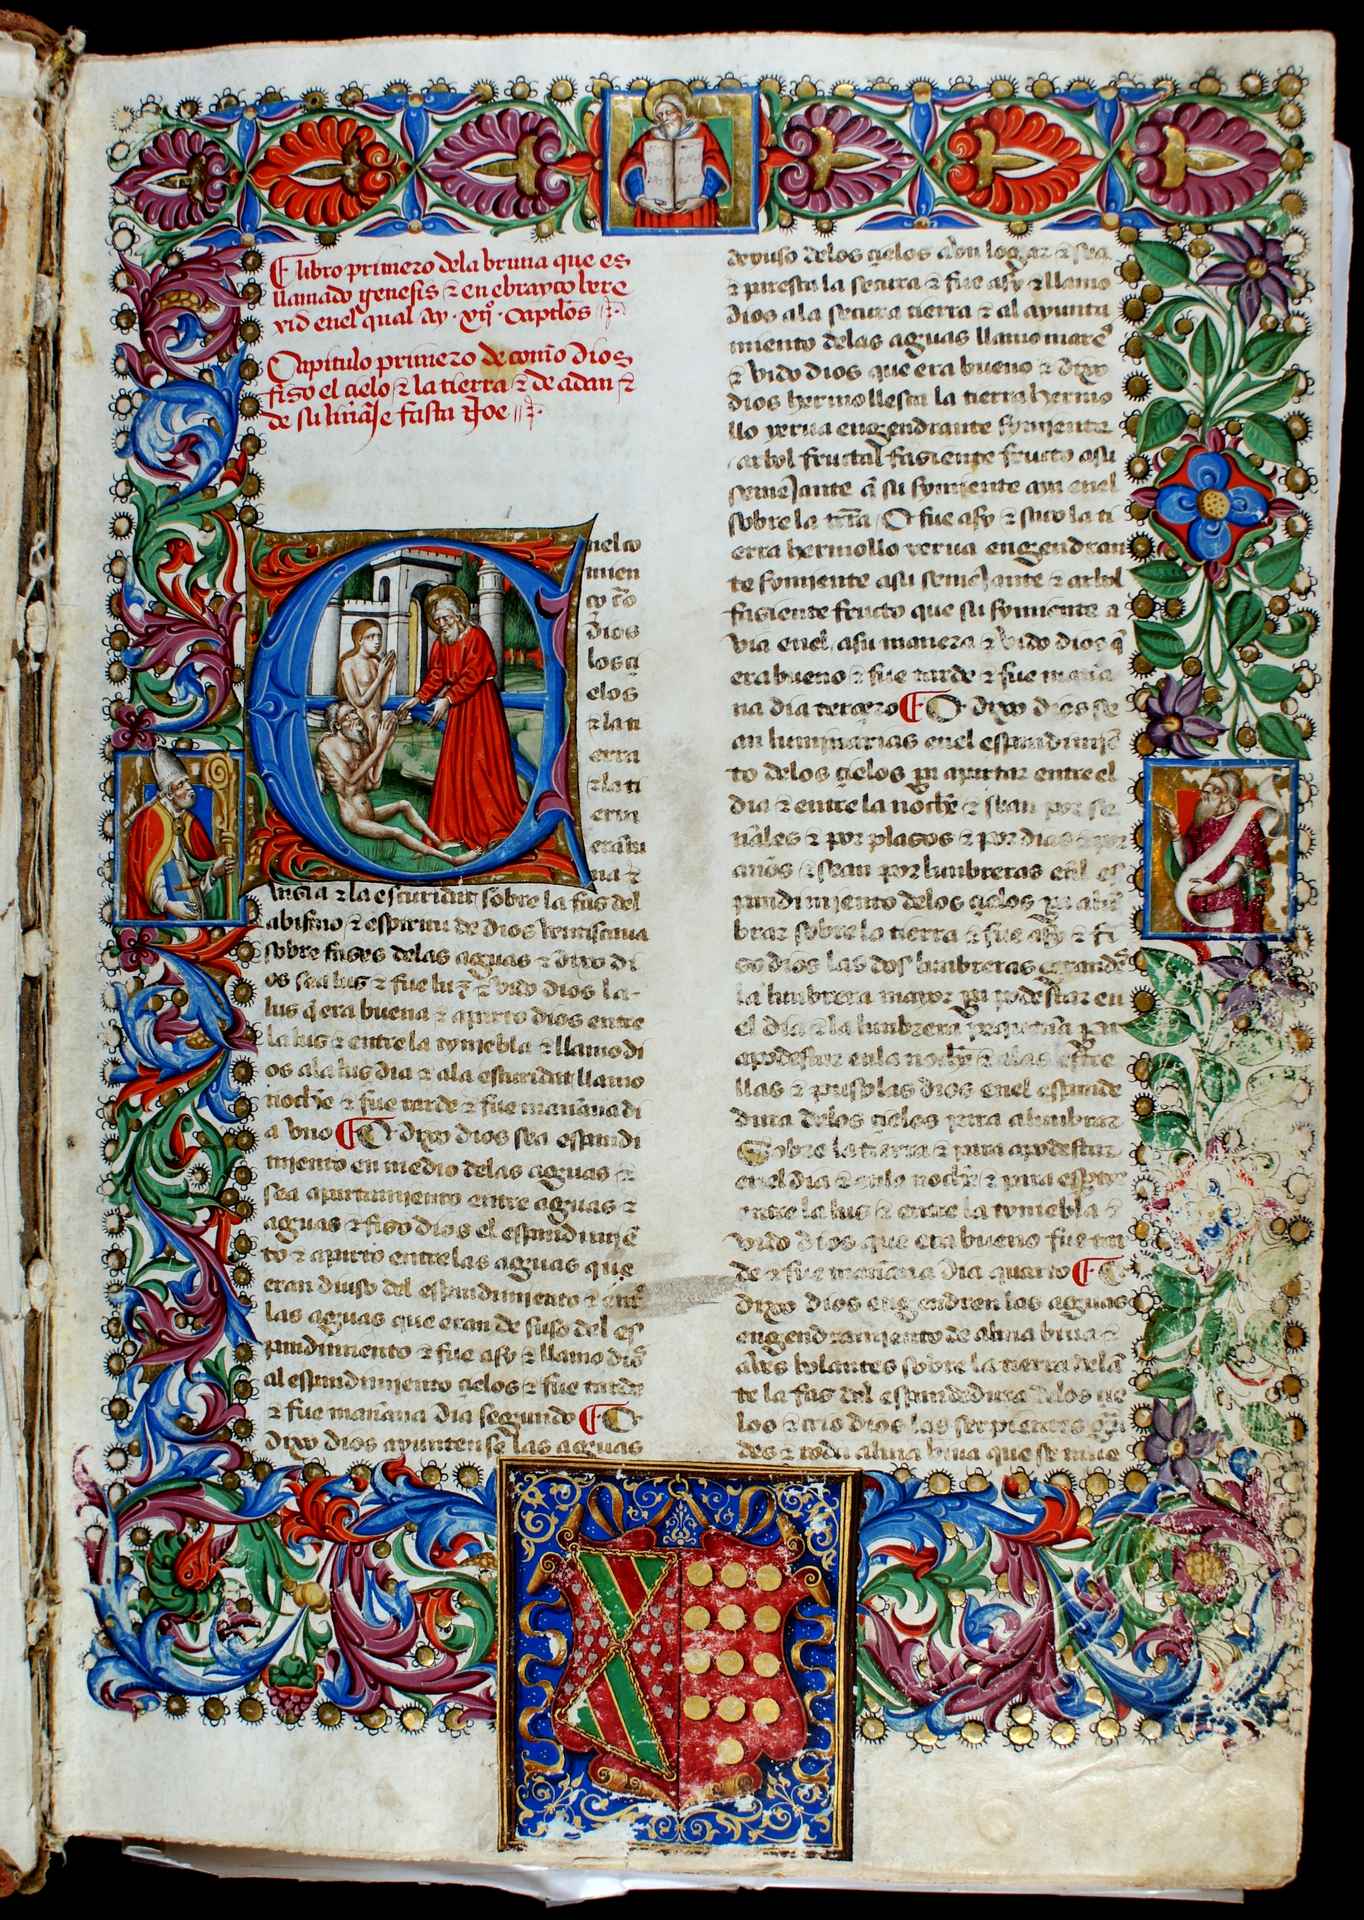 El libro primero dela briuia que es
llamado genesis ⁊ en ebrayco bere
xid enel qual ay · · capitlos
Capitulo primero de como dios
fiso el cielo ⁊ la tierra ⁊ de adan ⁊
de su linaje fasta noe
Enel co
mien
ço crio
dios
los çi
elos
⁊ la ti
erra
⁊ la ti
erra
era
na ⁊
⁊ la escuridat sobre la fas del
abismo ⁊ espiritu de dios ventiscaua
sobre fases delas aguas ⁊ dixo di
os sea lus ⁊ fue luz ⁊ vido dios la
lus q̃ era buena ⁊ aparto dios entre
la lus ⁊ entre la tyniebla ⁊ llamo di
os ala lus dia ⁊ ala escuridat llamo
noche ⁊ fue tarde ⁊ fue mañana di
a vno E dixo dios sea espandi
miento en medio delas aguas ⁊
sea apartamiento entre aguas ⁊
aguas ⁊ fiso dios el espandimiẽ
to ⁊ aparto entre las aguas que
eran diuso del espandimiento ⁊ entre
las aguas que eran de suso del es
pandimiento ⁊ fue asy ⁊ llamo dios
al espandimiento çielos ⁊ fue tarde
⁊ fue mañana dia segundo E
dixo dios ayuntense las aguas
deyuso delos çielos aun logar ⁊ sea
⁊ paresca la secura ⁊ fue asy ⁊ llamo
dios ala secura tierra ⁊ al ayunta
miento delas aguas llamo mares
⁊ vido dios que era bueno ⁊ dixo
dios hermollesca la tierra hermo
llo yerua engendrante symiente
arbol frutal fasiente fructo asu
semejante q̃ su symiente aya enel
sobre la trr̃a E fue asy ⁊ saco la ti
erra hermollo yerua engendran
te symiente asu semejante ⁊ arbol
fasiente fructo que su symiente a
via enel asu manera ⁊ vido dios q̃
era bueno ⁊ fue tarde ⁊ fue maña
na dia terçero E dixo dios se
an luminarias enel espandimiẽ
to delos çielos pa apartar entre el
dia ⁊ entre la noche ⁊ sean por se
ñales ⁊ por plasos ⁊ por dias ⁊ por
años ⁊ sean por lumbreras enl es
pandimiento delos çielos pa alũ
brar sobre la tierra ⁊ fue asy ⁊ fi
so dios las dos lumbreras grandes
la lumbrera mayor pa podestar en
el dia ⁊ la lumbrera pequeña pa
apodestar enla noche ⁊ alas estre
llas ⁊ pusolas dios enel espande
dura delos çielos para alumbrar
Sobre la tierra ⁊ para apodestar
enel dia ⁊ enla noche ⁊ para
entre la lus ⁊ entre la tyniebla ⁊
vido dios que era bueno fue tar
de ⁊ fue mañana dia quarto E
dixo dios engendren las aguas
engendramiento de alma biua ⁊
aves bolantes sobre la tierra delã
te la fas del espandedura delos çie
los ⁊ crio dios las serpientes grã
des ⁊ toda alma biua que se mue